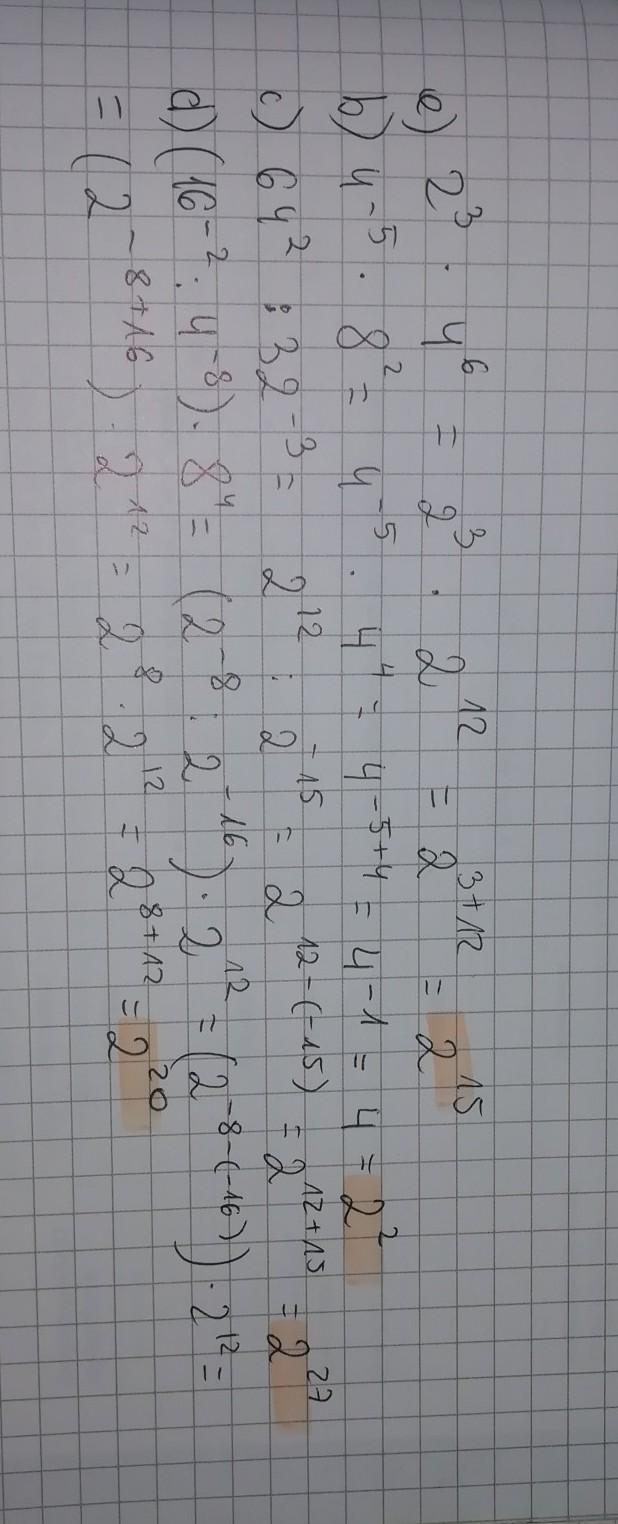 a) 2³ · 4⁶ = 2³ · 2¹² = 2³⁺¹² = 2¹⁵
b) 4⁻⁵ · 8² = 4⁻⁵ · 4⁴ = 4⁻⁵⁺⁴ = 4⁻¹ = 4 = 2²
c) 64² : 32⁻³ = 2¹² : 2⁻¹⁵ = 2¹²⁻⁽⁻¹⁵⁾ = 2¹²⁺¹⁵ = 2²⁷
d) (16⁻² : 4⁻⁸) · 8⁴ = (2⁻⁸ : 2⁻¹⁶) · 2¹² = (2⁻⁸⁻⁽⁻¹⁶⁾) · 2¹² =
= (2⁻⁸⁺¹⁶) · 2¹² = 2⁸ · 2¹² = 2⁸⁺¹² = 2²⁰